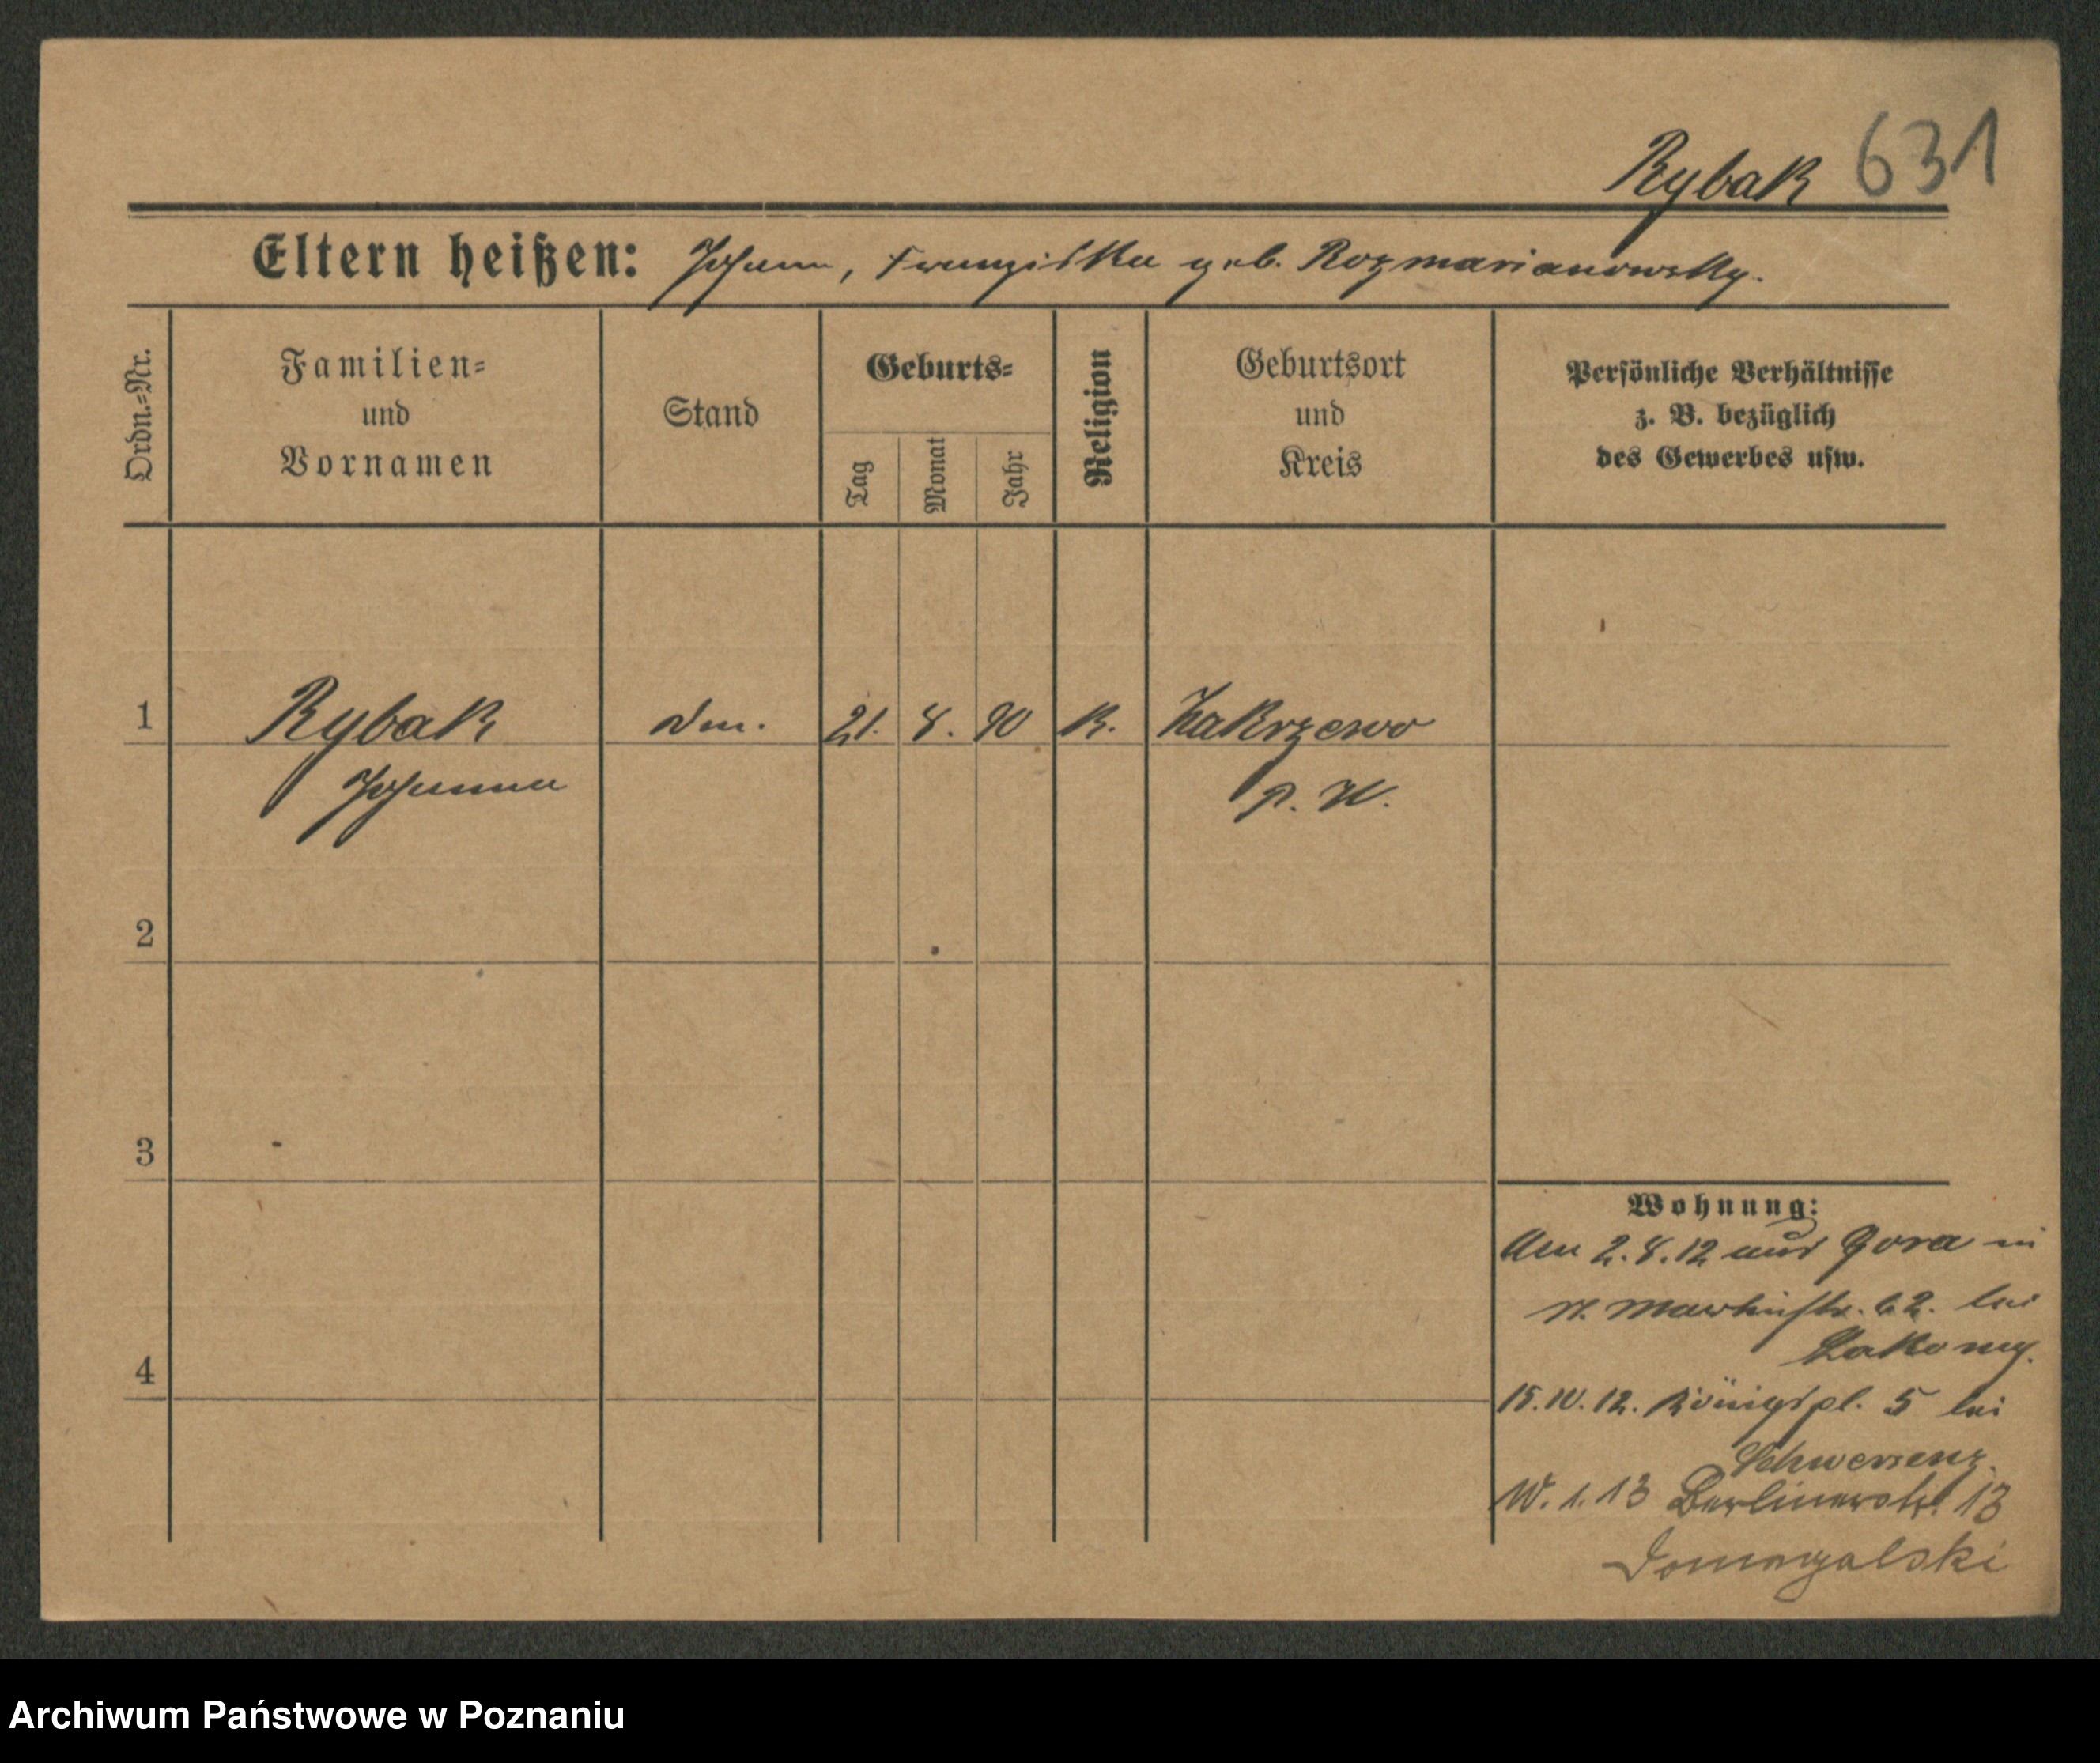 Rybak 631
Eltern heißen: Johann, Franziska geb. Rozmarianowsky.
Ordn.=Nr.
Familien=
und
Vornamen
Stand
Geburts=
Tag
Monat
Jahr
Religion
Geburtsort
und
Kreis
Persönliche Verhältnisse
z. B. bezüglich
des Gewerbes usw.
1 Rybak 21. 8. 90 K. Zakrzewo
Johanna P. W.
2
3
4
Wohnung:
Am 2. 8. 12 aus Gora in
St. Martinstr. 62. bei
15. 10. 12. Königspl. 5 bei
Schwersenz.
10. 1. 13 Berlinerstr. 13
Domagalski
Archiwum Państwowe w Poznaniu